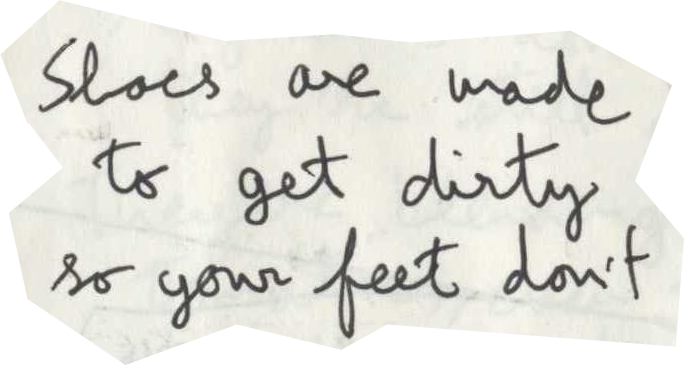 Shoes are made
to get dirty
so your feet don't